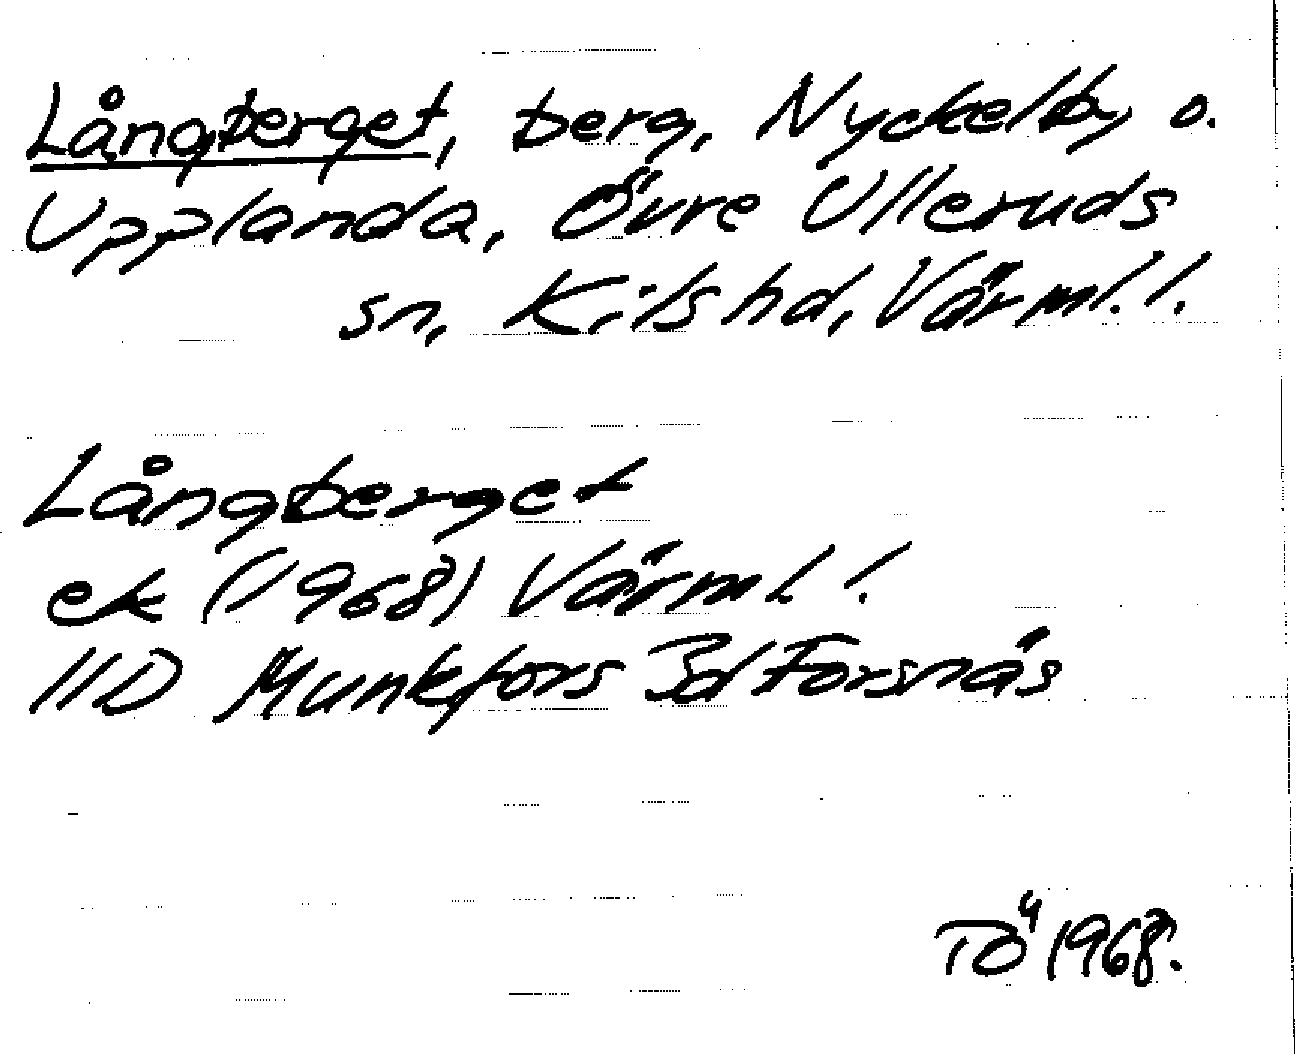 Långberget, berg, Nyckelby o.
Upplanda, Övre Ulleruds
sn, Kils hd, Värml. l.
Långberget
ek (1968) Värml. l.
11D Munkfors 3d Forsnäs
TÖ 1968.